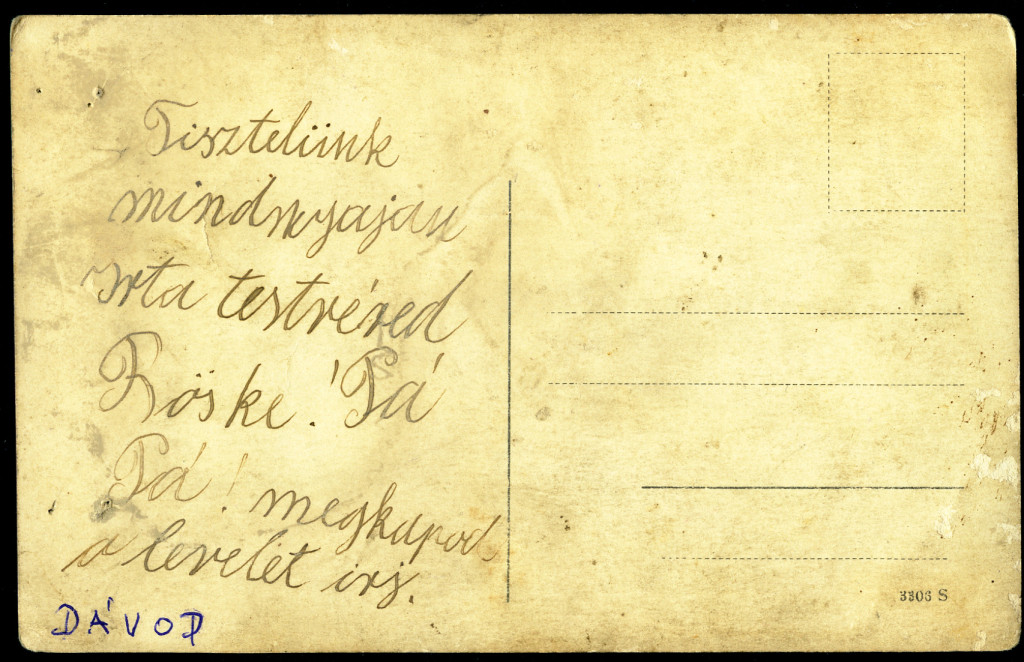 Tisztelünk
mindnyajan
Irta testvéred
Röske! Pá
Pá! megkapod
a levelet irj.
DÁVOD
3303 S